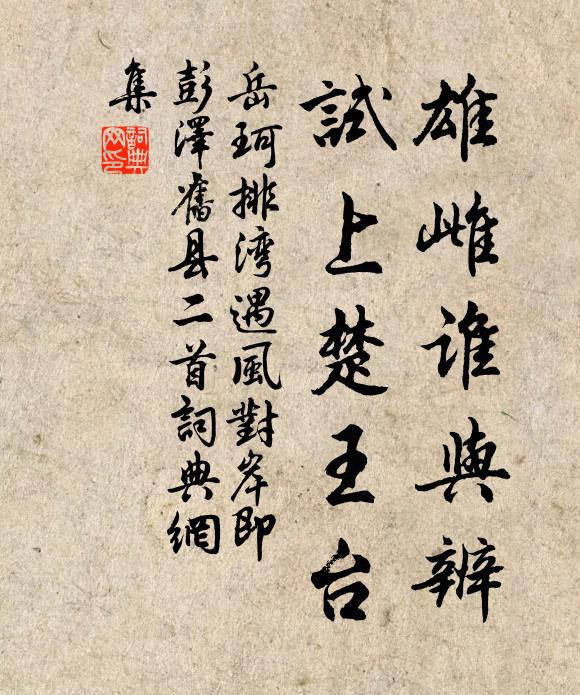 雄雌誰與辨
試上楚王台
岳珂排湾遇風對岸即
彭澤舊县二首詞典網
集
詞典
网印